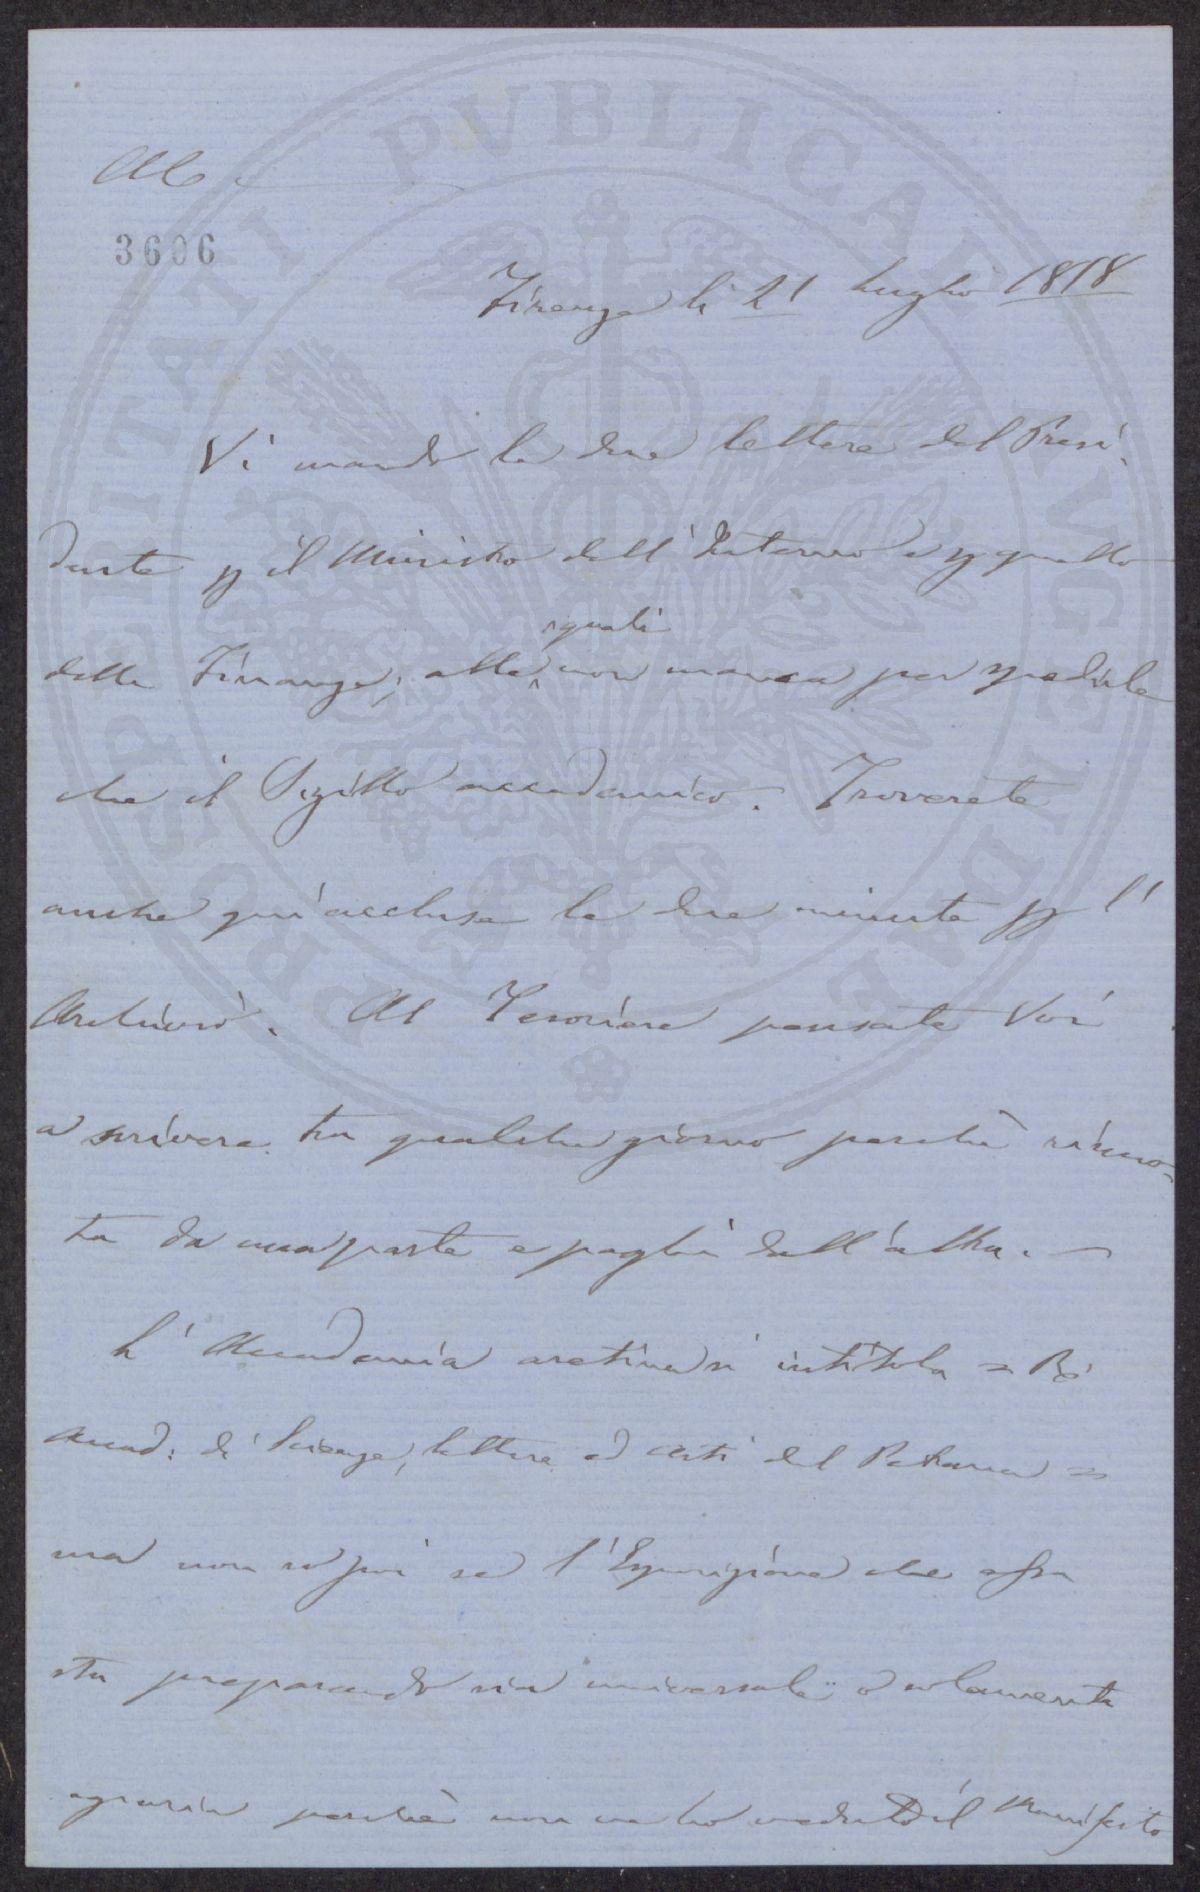 3606
Firenze li 21 Luglio 1878
Vi mando le due lettere del Presi-
dente p il Ministro dell'Interno e p quello
delle Finanze; alle quali non manca per spedirle
che il Sigillo accademico. Troverete
anche qui accluse le due minute p l'
Archivio. Al Tesoriere pensate Voi
a scrivere tra qualche giorno perchè riscuo-
ta da una parte e paghi dall'altra. —
L'Accademia aretina si intitola = Rˡ
Accad: di Scienze, lettere ed Arti del Petrarca =
ma non so poi se l'Esposizione che essa
sta preparando sia universale o solamente
agraria perchè non ne ho veduto il Manifesto
PROSPERITATI PVBLICAE AVGENDAE